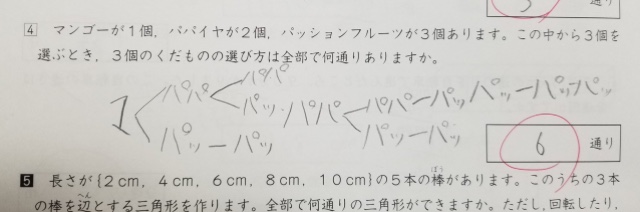 通り
4 マンゴーが1個，パパイヤが2個，パッションフルーツが3個あります。この中から3個を
選ぶとき，3個のくだものの選び方は全部で何通りありますか。
パパ パパ
マ パッ パパ パパーパッ パッーパッーパッ
パッーパッ パッーパッ
6 通り
5 長さが{2cm，4cm，6cm，8cm，10cm}の5本の棒があります。このうちの3本
の棒を辺とする三角形を作ります。全部で何通りの三角形ができますか。ただし，回転したり，